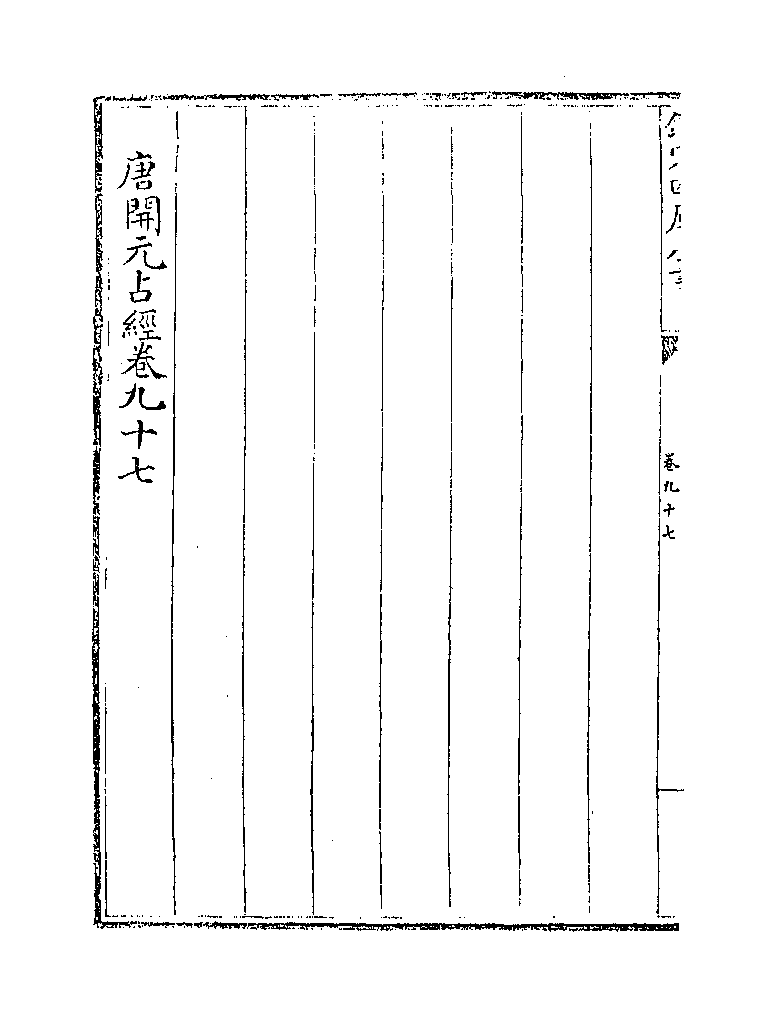 欽定四庫全書
卷九十七
唐開元占經卷九十七